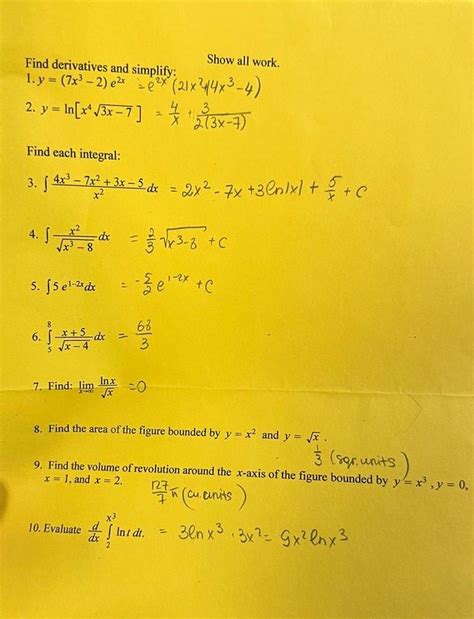 Show all work.
Find derivatives and simplify:
1. y = (7x³ – 2) e²ˣ = e²ˣ (21x²+14x³-4)
2. y = ln[x⁴√(3x – 7)] = 4/x + 3/(2(3x-7))
Find each integral:
3. ∫ (4x³ – 7x² + 3x – 5)/x² dx = 2x² - 7x + 3ln|x| + 5/x + C
4. ∫ x²/√(x³ – 8) dx = 2/3 √(x³-8) + C
5. ∫ 5 e¹⁻²ˣdx = -5/2 e¹⁻²ˣ + C
6. ∫₅⁸ (x + 5)/√(x – 4) dx = 68/3
7. Find: lim x→∞ ln x/√x = 0
8. Find the area of the figure bounded by y = x² and y = √x .
1/3 (sqr. units)
9. Find the volume of revolution around the x-axis of the figure bounded by y = x³ , y = 0,
x = 1, and x = 2.
127/7 π (cu. units)
10. Evaluate d/dx ∫₂^x³ ln t dt. = 3lnx³ · 3x² = 9x² lnx³